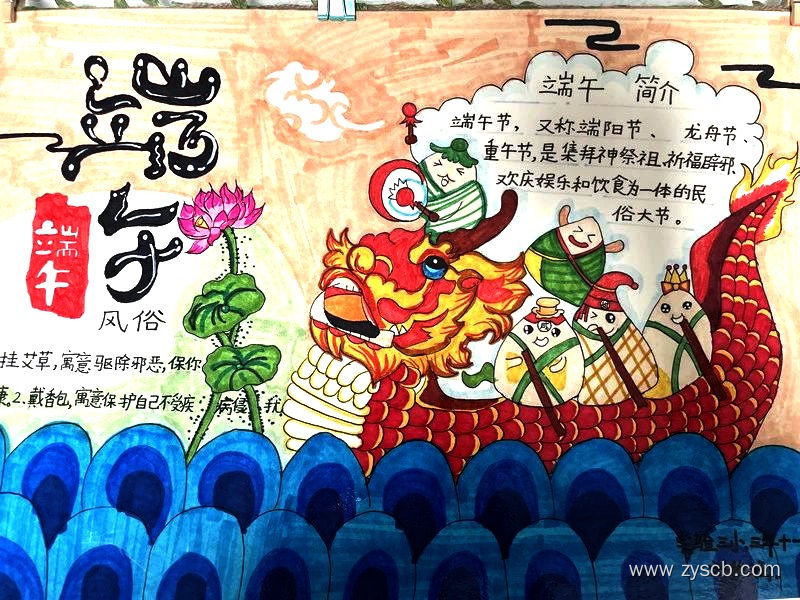 端午
端午
风俗
挂艾草,寓意驱除邪恶,保你
康,2.戴香包,寓意保护自己不受疾病侵扰
端午 简介
端午节,又称端阳节、龙舟节、
重午节,是集拜神祭祖、祈福辟邪、
欢庆娱乐和饮食为一体的民
俗大节。
www.zyscb.com